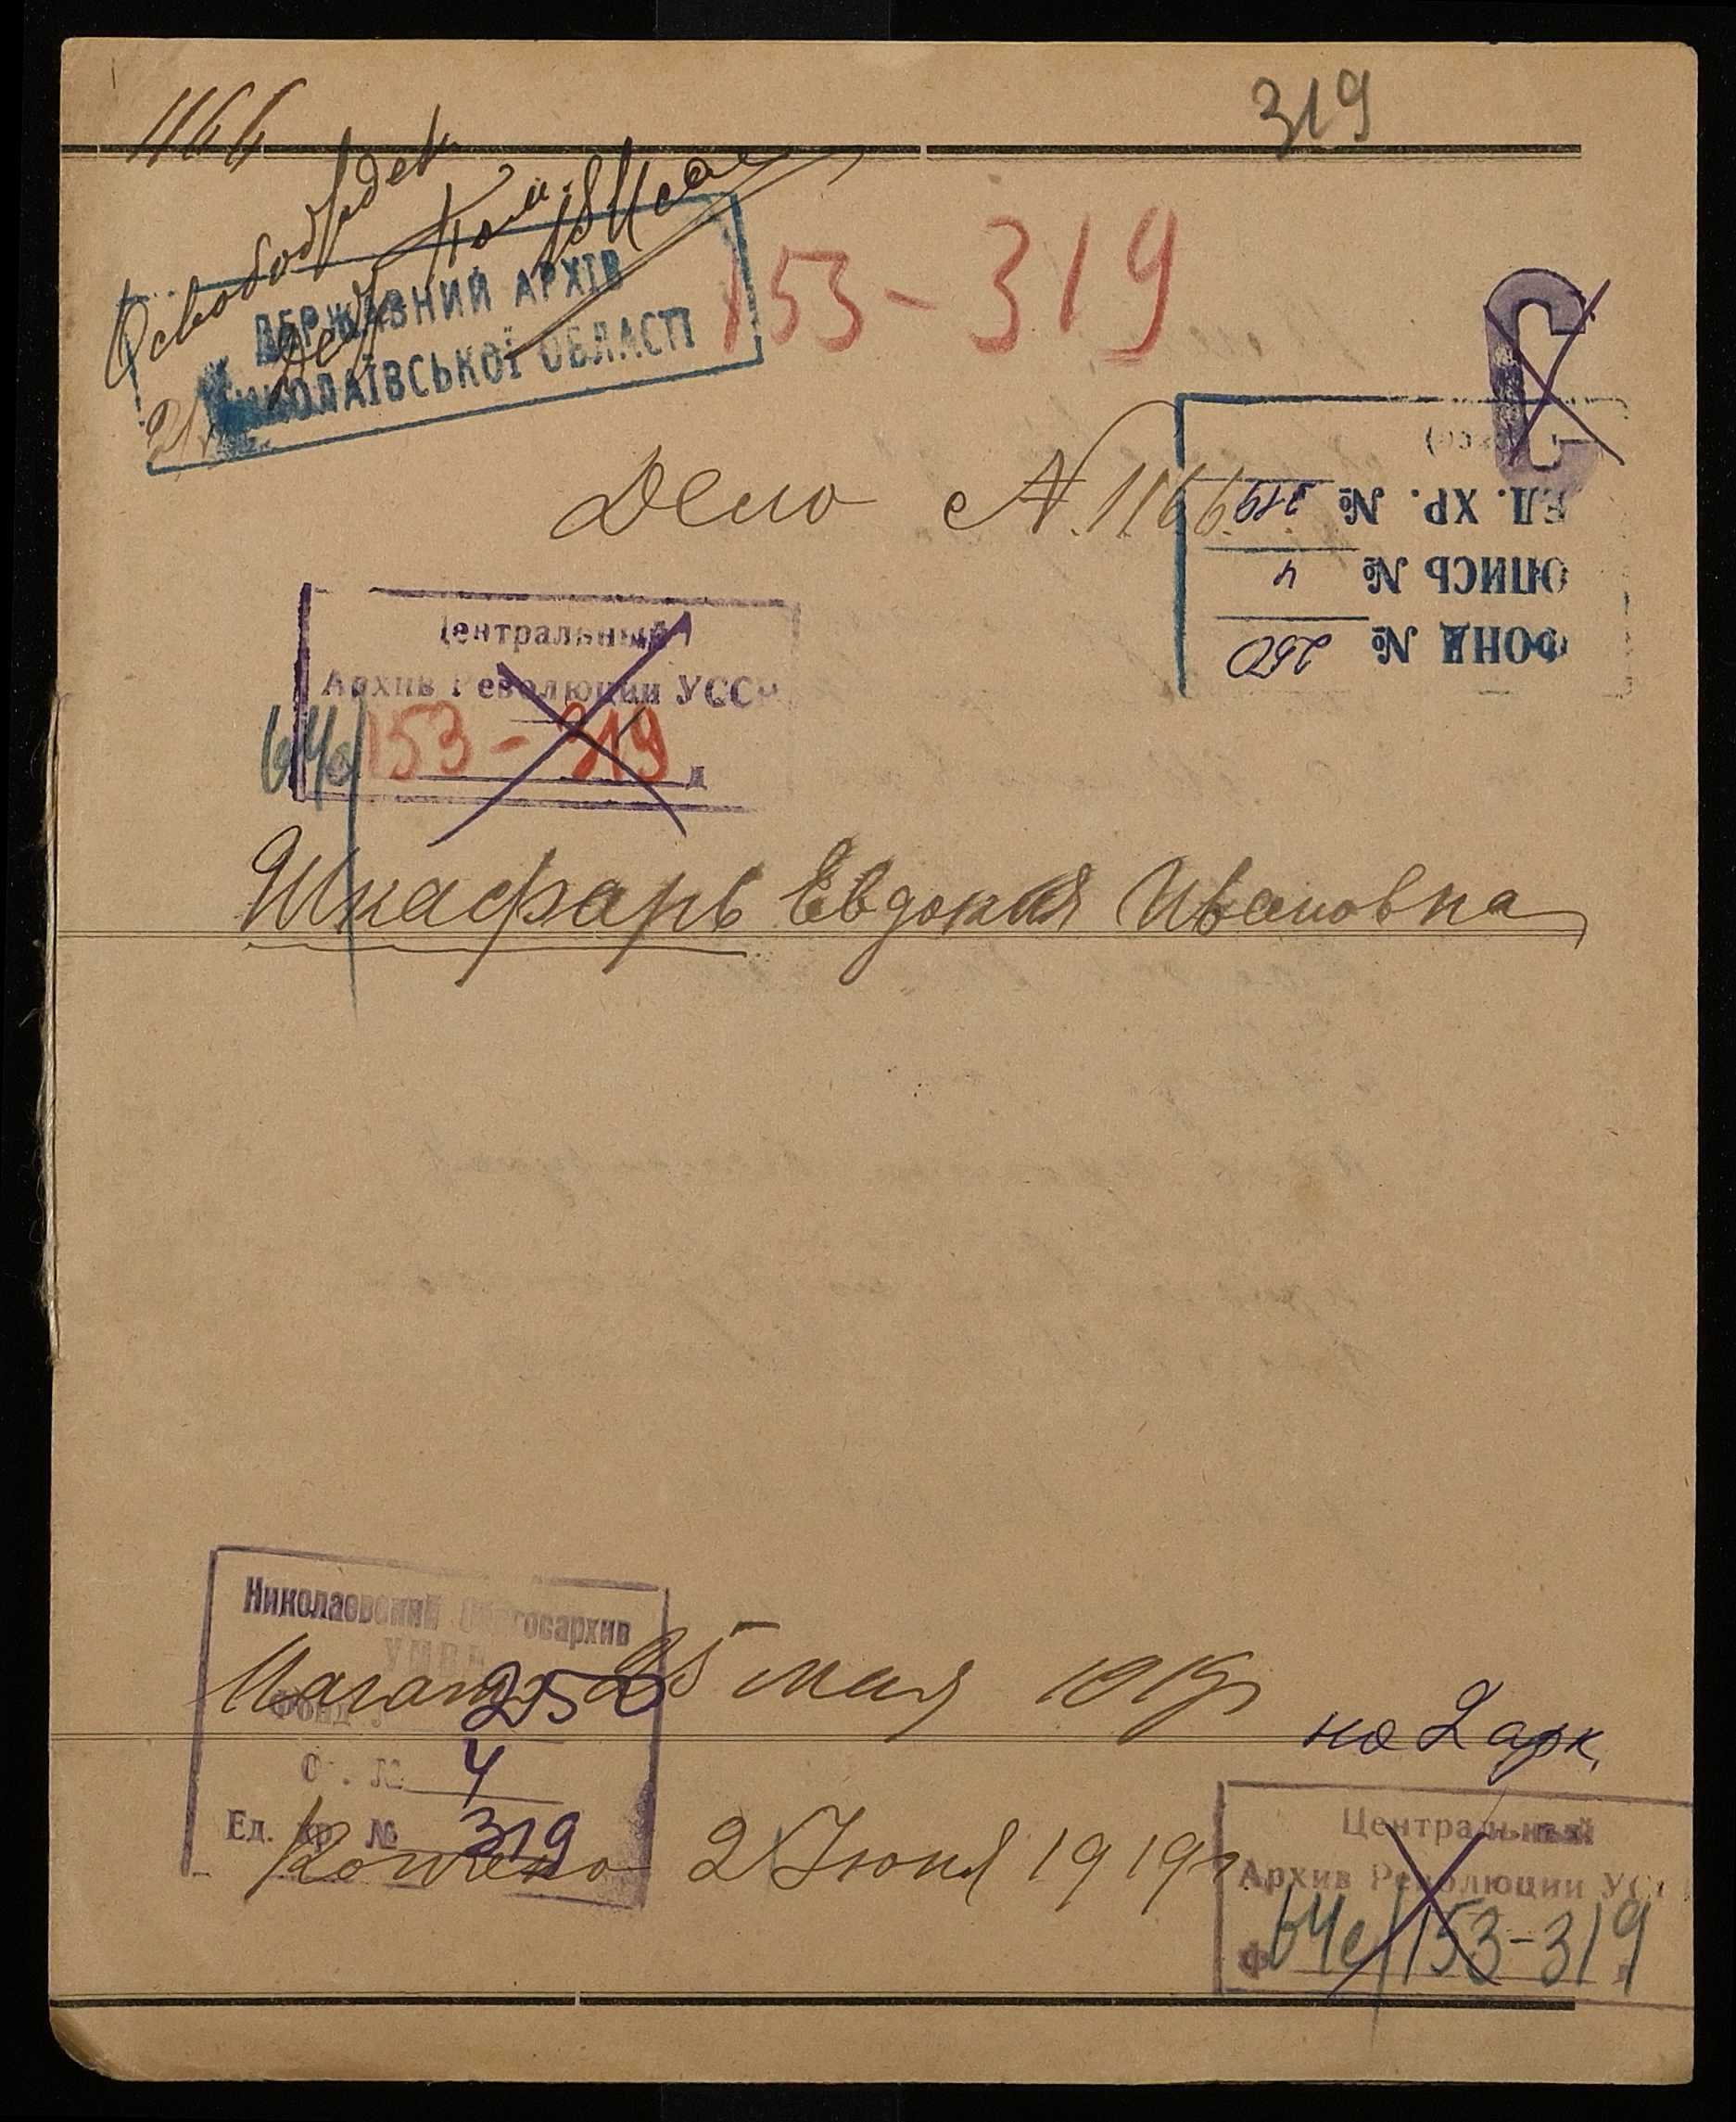 1166
319
Освобожден
153-319
ДЕРЖАВНИЙ АРХІВ
МИКОЛАЇВСЬКОЇ ОБЛАСТІ
Дело № 1166
ФОНД № 250
ОПИСЬ № 4
ЕД. ХР. № 319
Центральный
Архив Революции УССР
64с/153-319 д
Шкафарь Евдокия Ивановна
Николаевский Облгосархив
УМВД
Фонд № 250
Оп. № 4
Ед. хр. № 319
Начато 25 мая 1919г
на 2 арк.
Кончено 2 Июня 1919г
Центральный
Архив Революции УСС
Ф 64с/153-319